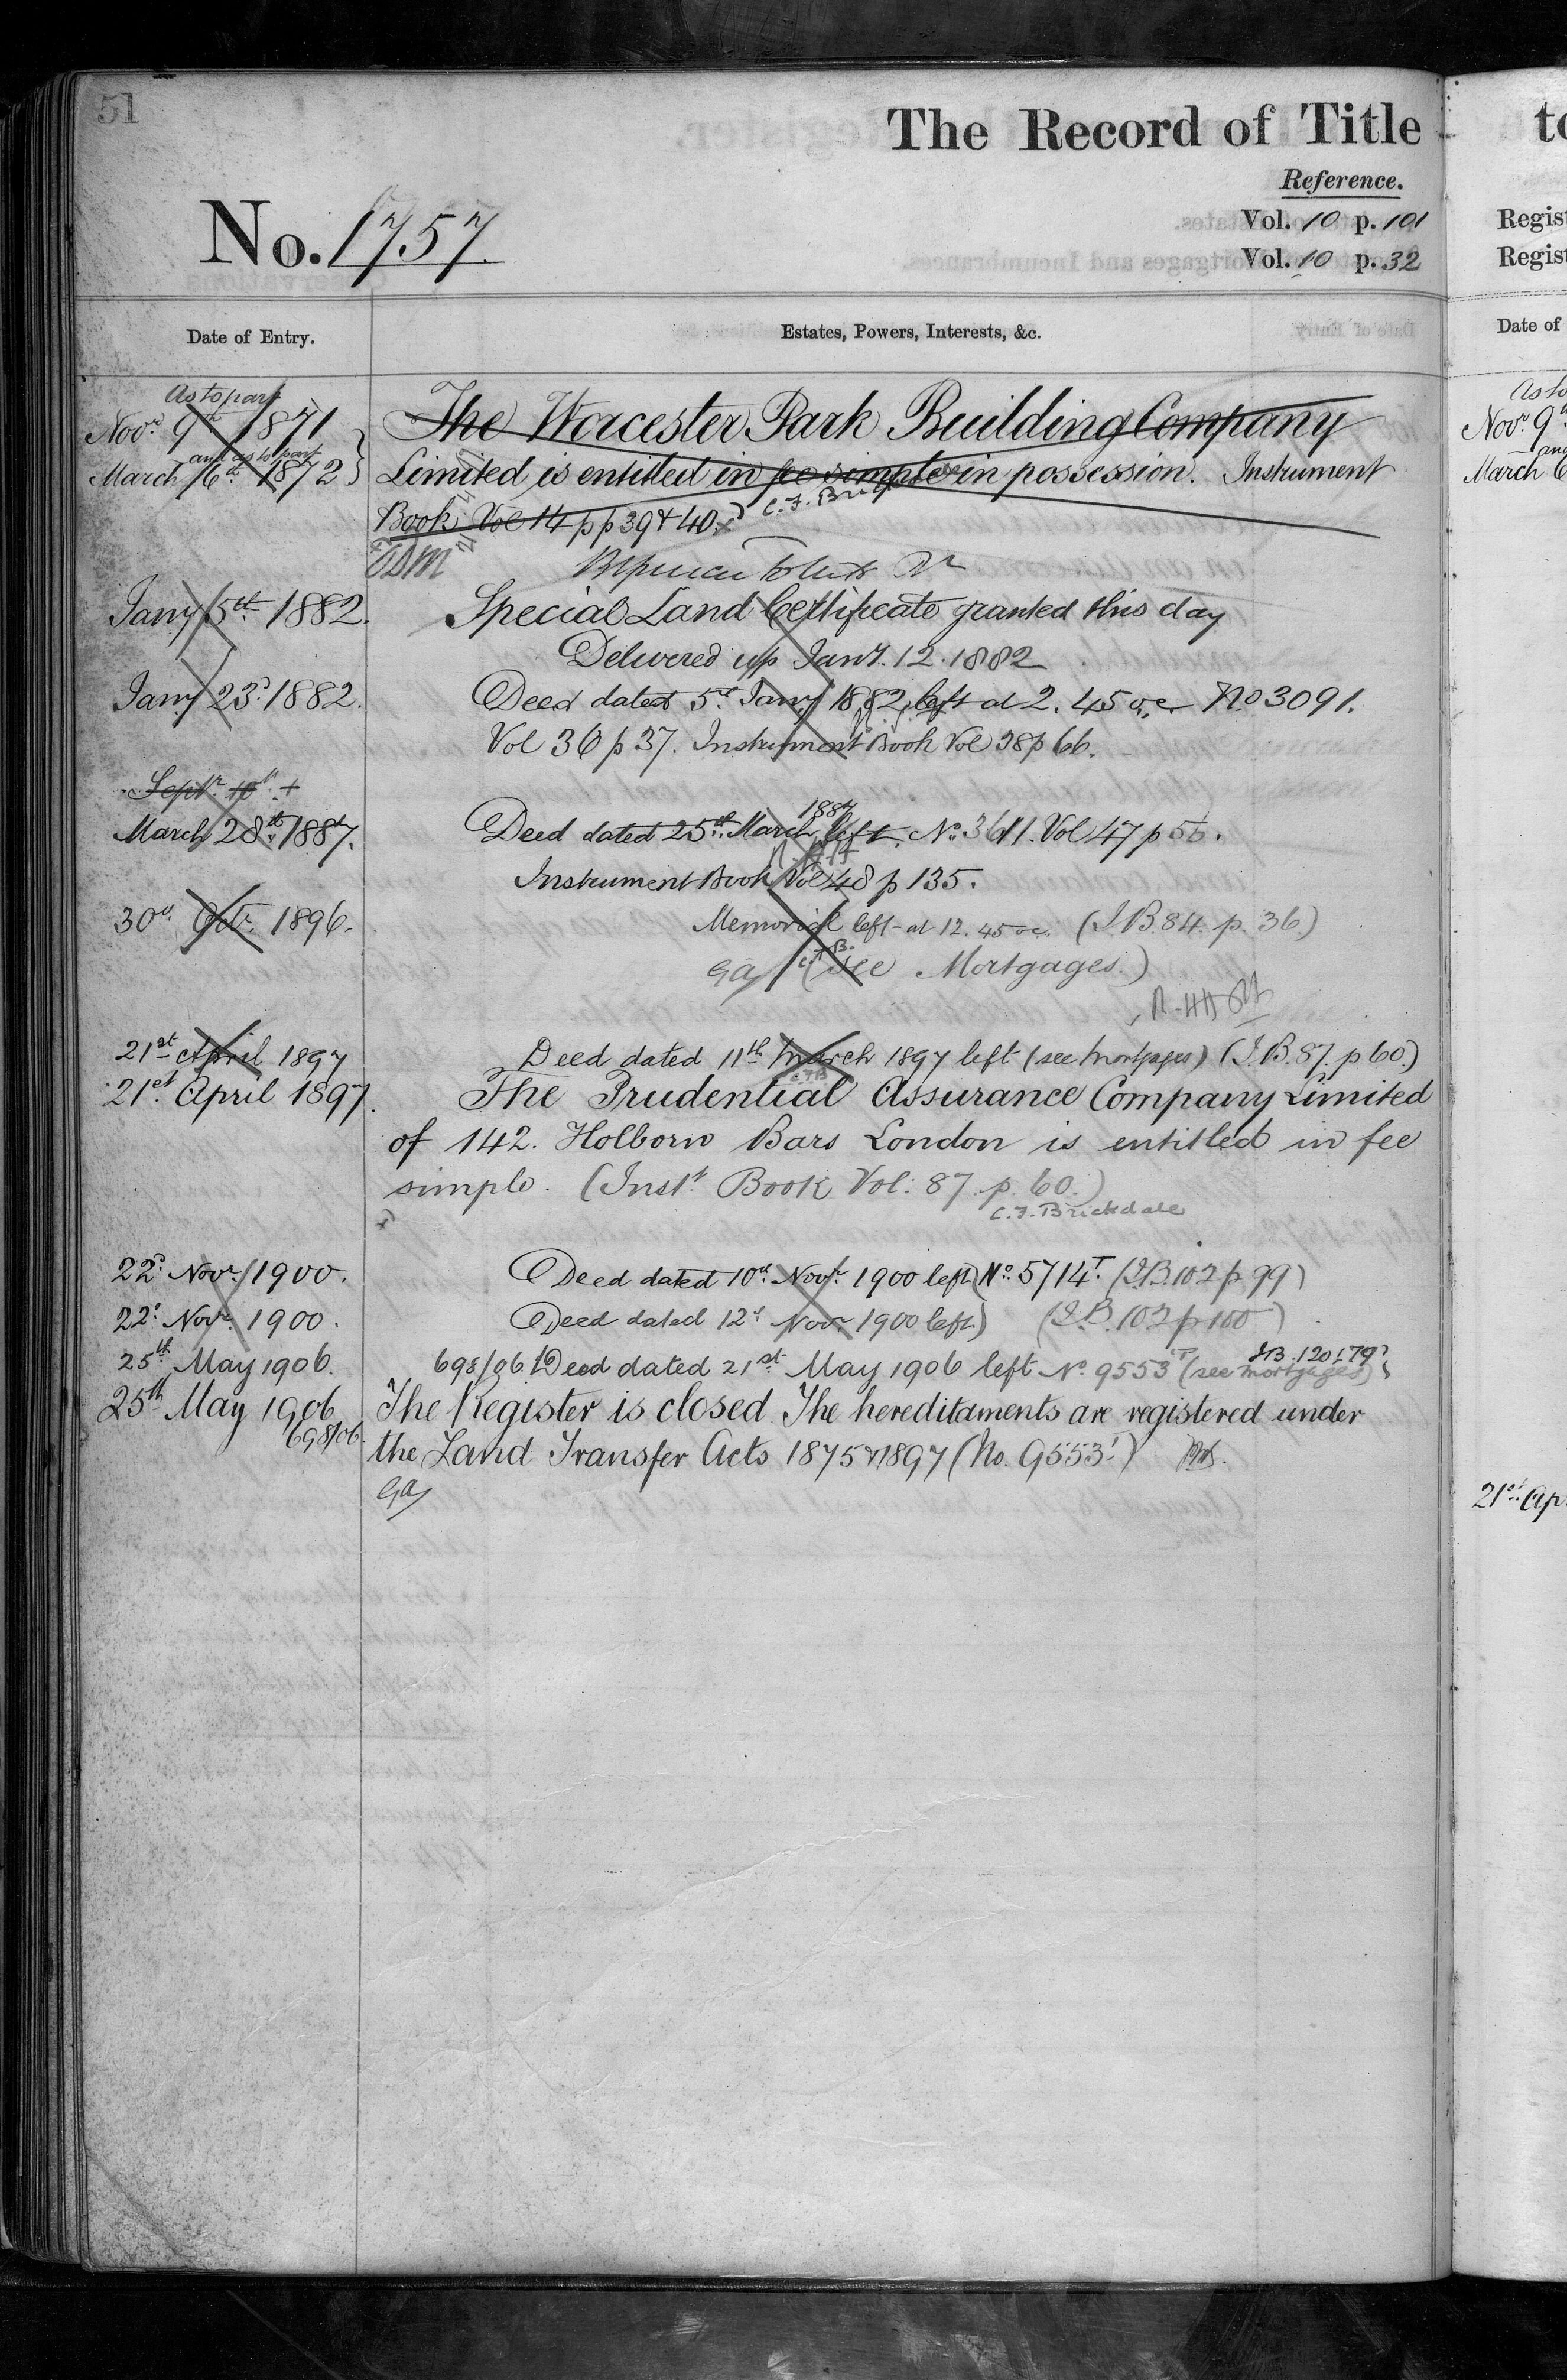 51
The Record of Title
Reference.
No. 1757.
Vol. 10 p. 101
Vol. 10 p. 32
Date of Entry.
Estates, Powers, Interests, &c.
As to part
Novr. 9th 1871
and as to part
March 6th 1872
The Worcester Park Building Company
Limited is entitled in fee simple in possession. Instrument
Book Vol 14 pp 39 & 40.
Jany 5th 1882.
Special Land Certificate granted this day
Delivered up Jany. 12. 1882
Jany 23d. 1882.
Deed dated 5th Jany 1882 left at 2.45 No 3091.
Vol 36 p 37. Instrument Book Vol 38 p 66.
Septr. 10th +
March 28th 1887.
Deed dated 25th March 1887 left. No. 3611. Vol 47 p 55.
Instrument Book Vol 48 p 135.
30th Octr. 1896.
Memorial left at 12.45 (I.B. 84. p. 36)
(See Mortgages.)
21st April 1897
Deed dated 11th March 1897 left (see Mortgages) (I.B. 87. p 60.)
21st. April 1897.
The Prudential Assurance Company Limited
of 142. Holborn Bars London is entitled in fee
simple. (Inst. Book Vol: 87. p. 60.)
C. F. Brickdale
22d Novr. 1900.
Deed dated 10th Novr. 1900 left No. 5714T. (I.B. 102 p. 99)
22d Novr. 1900.
Deed dated 12th Novr. 1900 left) (I.B. 102 p. 100)
25th May 1906.
698/06. Deed dated 21st May 1906 left No. 9553 (see Mortgages) I.B. 120. 179
25th May 1906
698/06.
The Register is closed. The hereditaments are registered under
the Land Transfer Acts 1875 & 1897 (No. 9553.)
to
Regis
Regis
Date of
As to
Novr. 9
and
March 6
21st. Ap